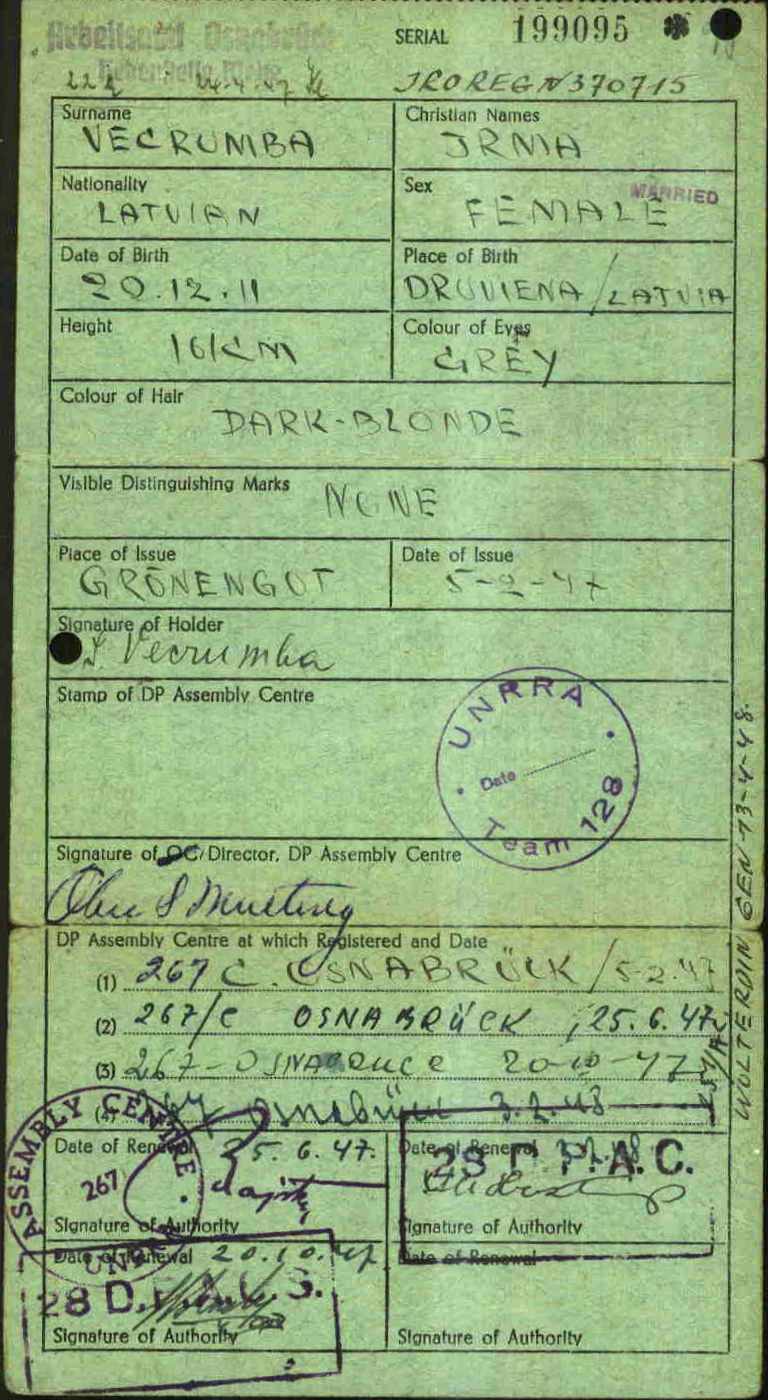 Arbeitsamt Osnabrück
SERIAL 199095
Nebenstelle Melle
IROREGN370715
Surname
VECRUMBA
Christian Names
IRMA
Nationality
LATVIAN
Sex
MARRIED
FEMALE
Date of Birth
20.12.11
Place of Birth
DRUVIENA/LATVIA
Height
161CM
Colour of Eyes
GREY
Colour of Hair
DARK-BLONDE
Visible Distinguishing Marks
NONE
Place of Issue
GRÖNENGOT
Date of Issue
5-2-47
Signature of Holder
I. Vecrumba
Stamp of DP Assembly Centre
UNRRA
Date
Team 128
Signature of OC/Director, DP Assembly Centre
DP Assembly Centre at which Registered and Date
(1) 267 C. OSNABRÜCK/5-2-47
(2) 267/C OSNABRÜCK, 25.6.47
(3) 267-OSNABRUCE 20-10-47
(4) 267 Osnabrück 3.2.48
WOLTERDINGEN-13-4-48.
ASSEMBLY CENTRE
267
Date of Renewal 25.6.47.
Signature of Authority
Date of Renewal 3.2.48
P.A.C.
Signature of Authority
Date of Renewal 20.10.47
28 D.
Signature of Authority
Date of Renewal
Signature of Authority